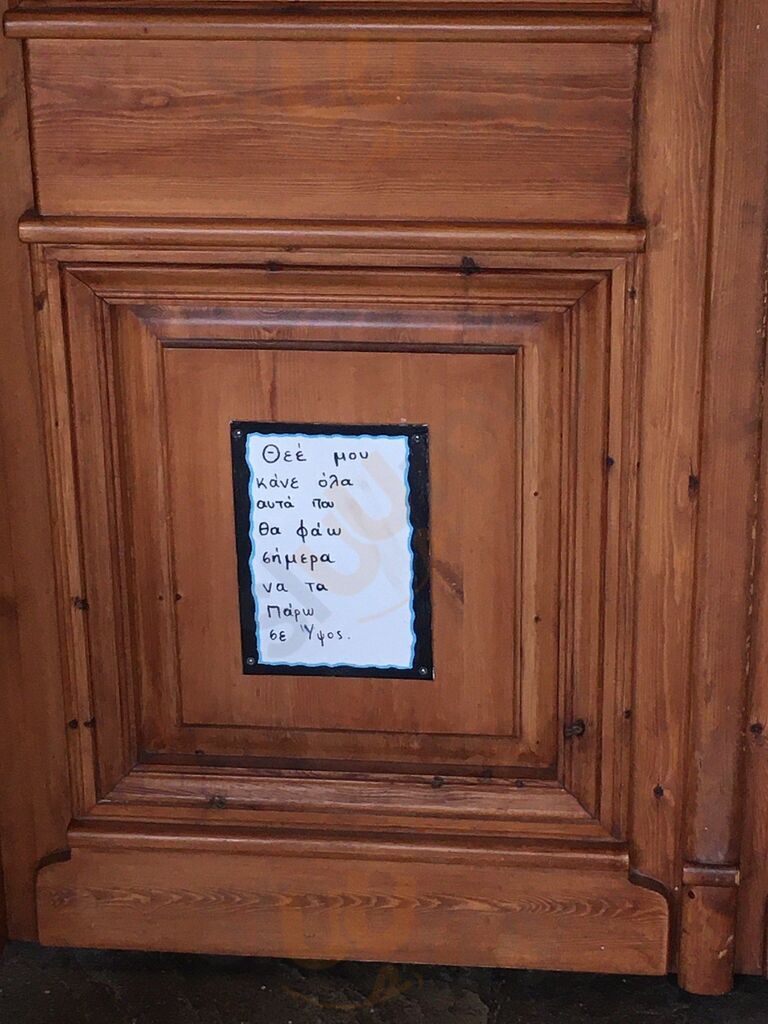 Θεέ μου
κάνε όλα
αυτά που
θα φάω
σήμερα
να τα
πάρω
σε Ύψος.